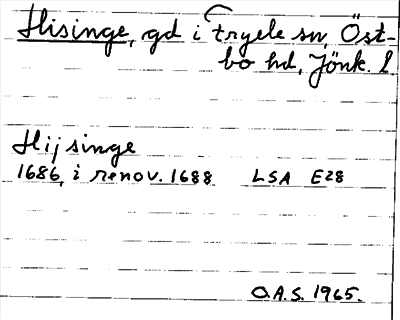 Hisinge, gd i Tryele sn, Öst-
bo hd, Jönk. l.
Hijsinge
1686, i renov. 1688 LSA E28
O.A.S. 1965.